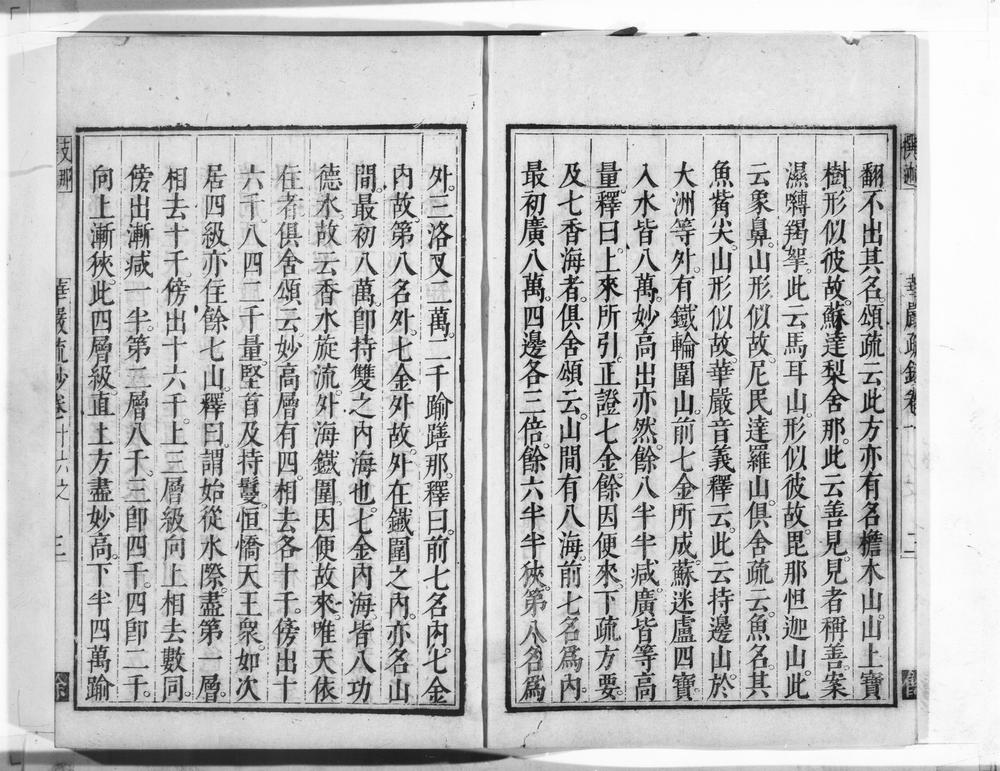 翻不出其名。頌疏云此方亦有名檐木山山上寶
樹。形似彼故。蘇達梨舍那。此云善見。見者稱善。案
濕嚩羯拏。此云馬耳山。形似彼故。毘那怛迦山。此
云象鼻。山形似故。尼民達羅山。俱舍疏云。魚名。其
魚觜尖。山形似故。華嚴音義釋云。此云持邊山。於
大洲等外。有鐵輪圍山。前七金所成。蘇迷盧四寶。
入水皆八萬。妙高出亦然。餘八半半減。廣皆等高
量。釋曰。上來所引。正證七金。餘因便來。下疏方要。
及七香海者。俱舍頌云。山間有八海。前七名爲內。
最初廣八萬。四邊各三倍。餘六半半狹。第八名爲
外。三洛叉二萬。二千踰繕那。釋曰。前七名內。七金
內故。第八名外。七金外故。外在鐵圍之內。亦名山
間。最初八萬。卽持雙之內海也。七金內海皆八功
德水。故云香水旋流。外海鐵圍。因便故來。唯天依
住者。俱舍頌云。妙高層有四。相去各十千。傍出十
六千。八四二千量。堅首及持鬘。恒憍天王衆。如次
居四級。亦住餘七山。釋曰。謂始從水際。盡第一層。
相去十千。傍出十六千。上三層級。向上相去數同。
傍出漸減一半。第二層八千。三卽四千。四卽二千。
向上漸狹。此四層級。直上方盡妙高。下半四萬踰
華嚴疏鈔卷十六之 三